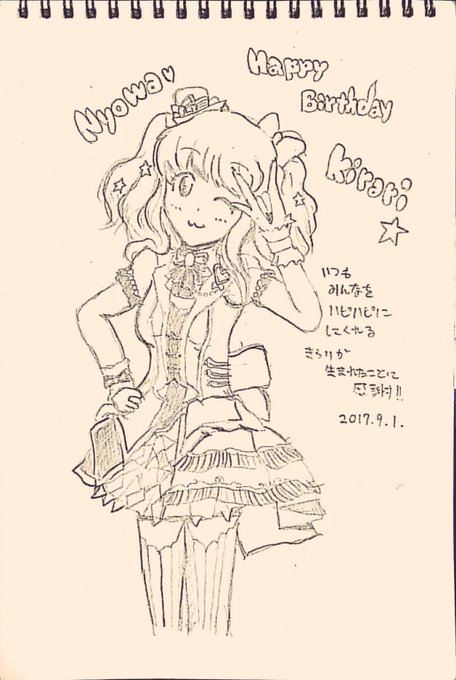 Nyowa♡
Happy
Birthday
Kirari
☆
いつも
みんなを
ハピハピに
してくれる
きらりが
生まれたことに
感謝!!
2017.9.1.